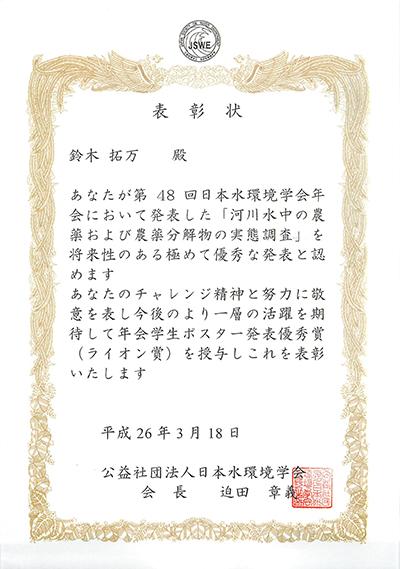 JSWE
表彰状
鈴木 拓万 殿
あなたが第 48 回日本水環境学会年
会において発表した「河川水中の農
薬および農薬分解物の実態調査」を
将来性のある極めて優秀な発表と認
めます
あなたのチャレンジ精神と努力に敬
意を表し今後のより一層の活躍を期
待して年会学生ポスター発表優秀賞
（ライオン賞）を授与しこれを表彰
いたします
平成 26 年 3 月 18 日
公益社団法人日本水環境学会
会 長 迫田 章義